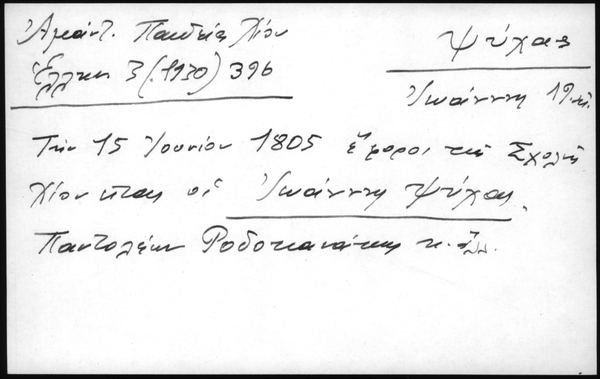 Ἀμάντ. Παιδεία Χίου
Ἑλλην 3 (1930) 396
Ψύχας
Ἰωάννης 19 αἰ.
Τὴν 15 Ἰουνίου 1805 ἔφοροι τῆς Σχολῆς
Χίου ἦταν οἱ Ἰωάννης Ψύχας,
Παντολέων Ροδοκανάκης κ. ἄλλ.